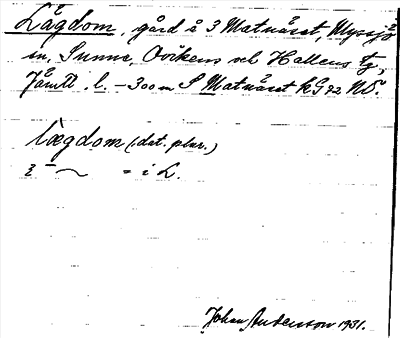 Lågdom, gård å 3 Matnäset, Myssjö
sn, Sunne, Ovikens och Hallens tg,
Jämtl. l. – 300 m S Matnäset kG 22 NO.
lægdom (dat. plur.)
= i L.
Johan Andersson 1931.